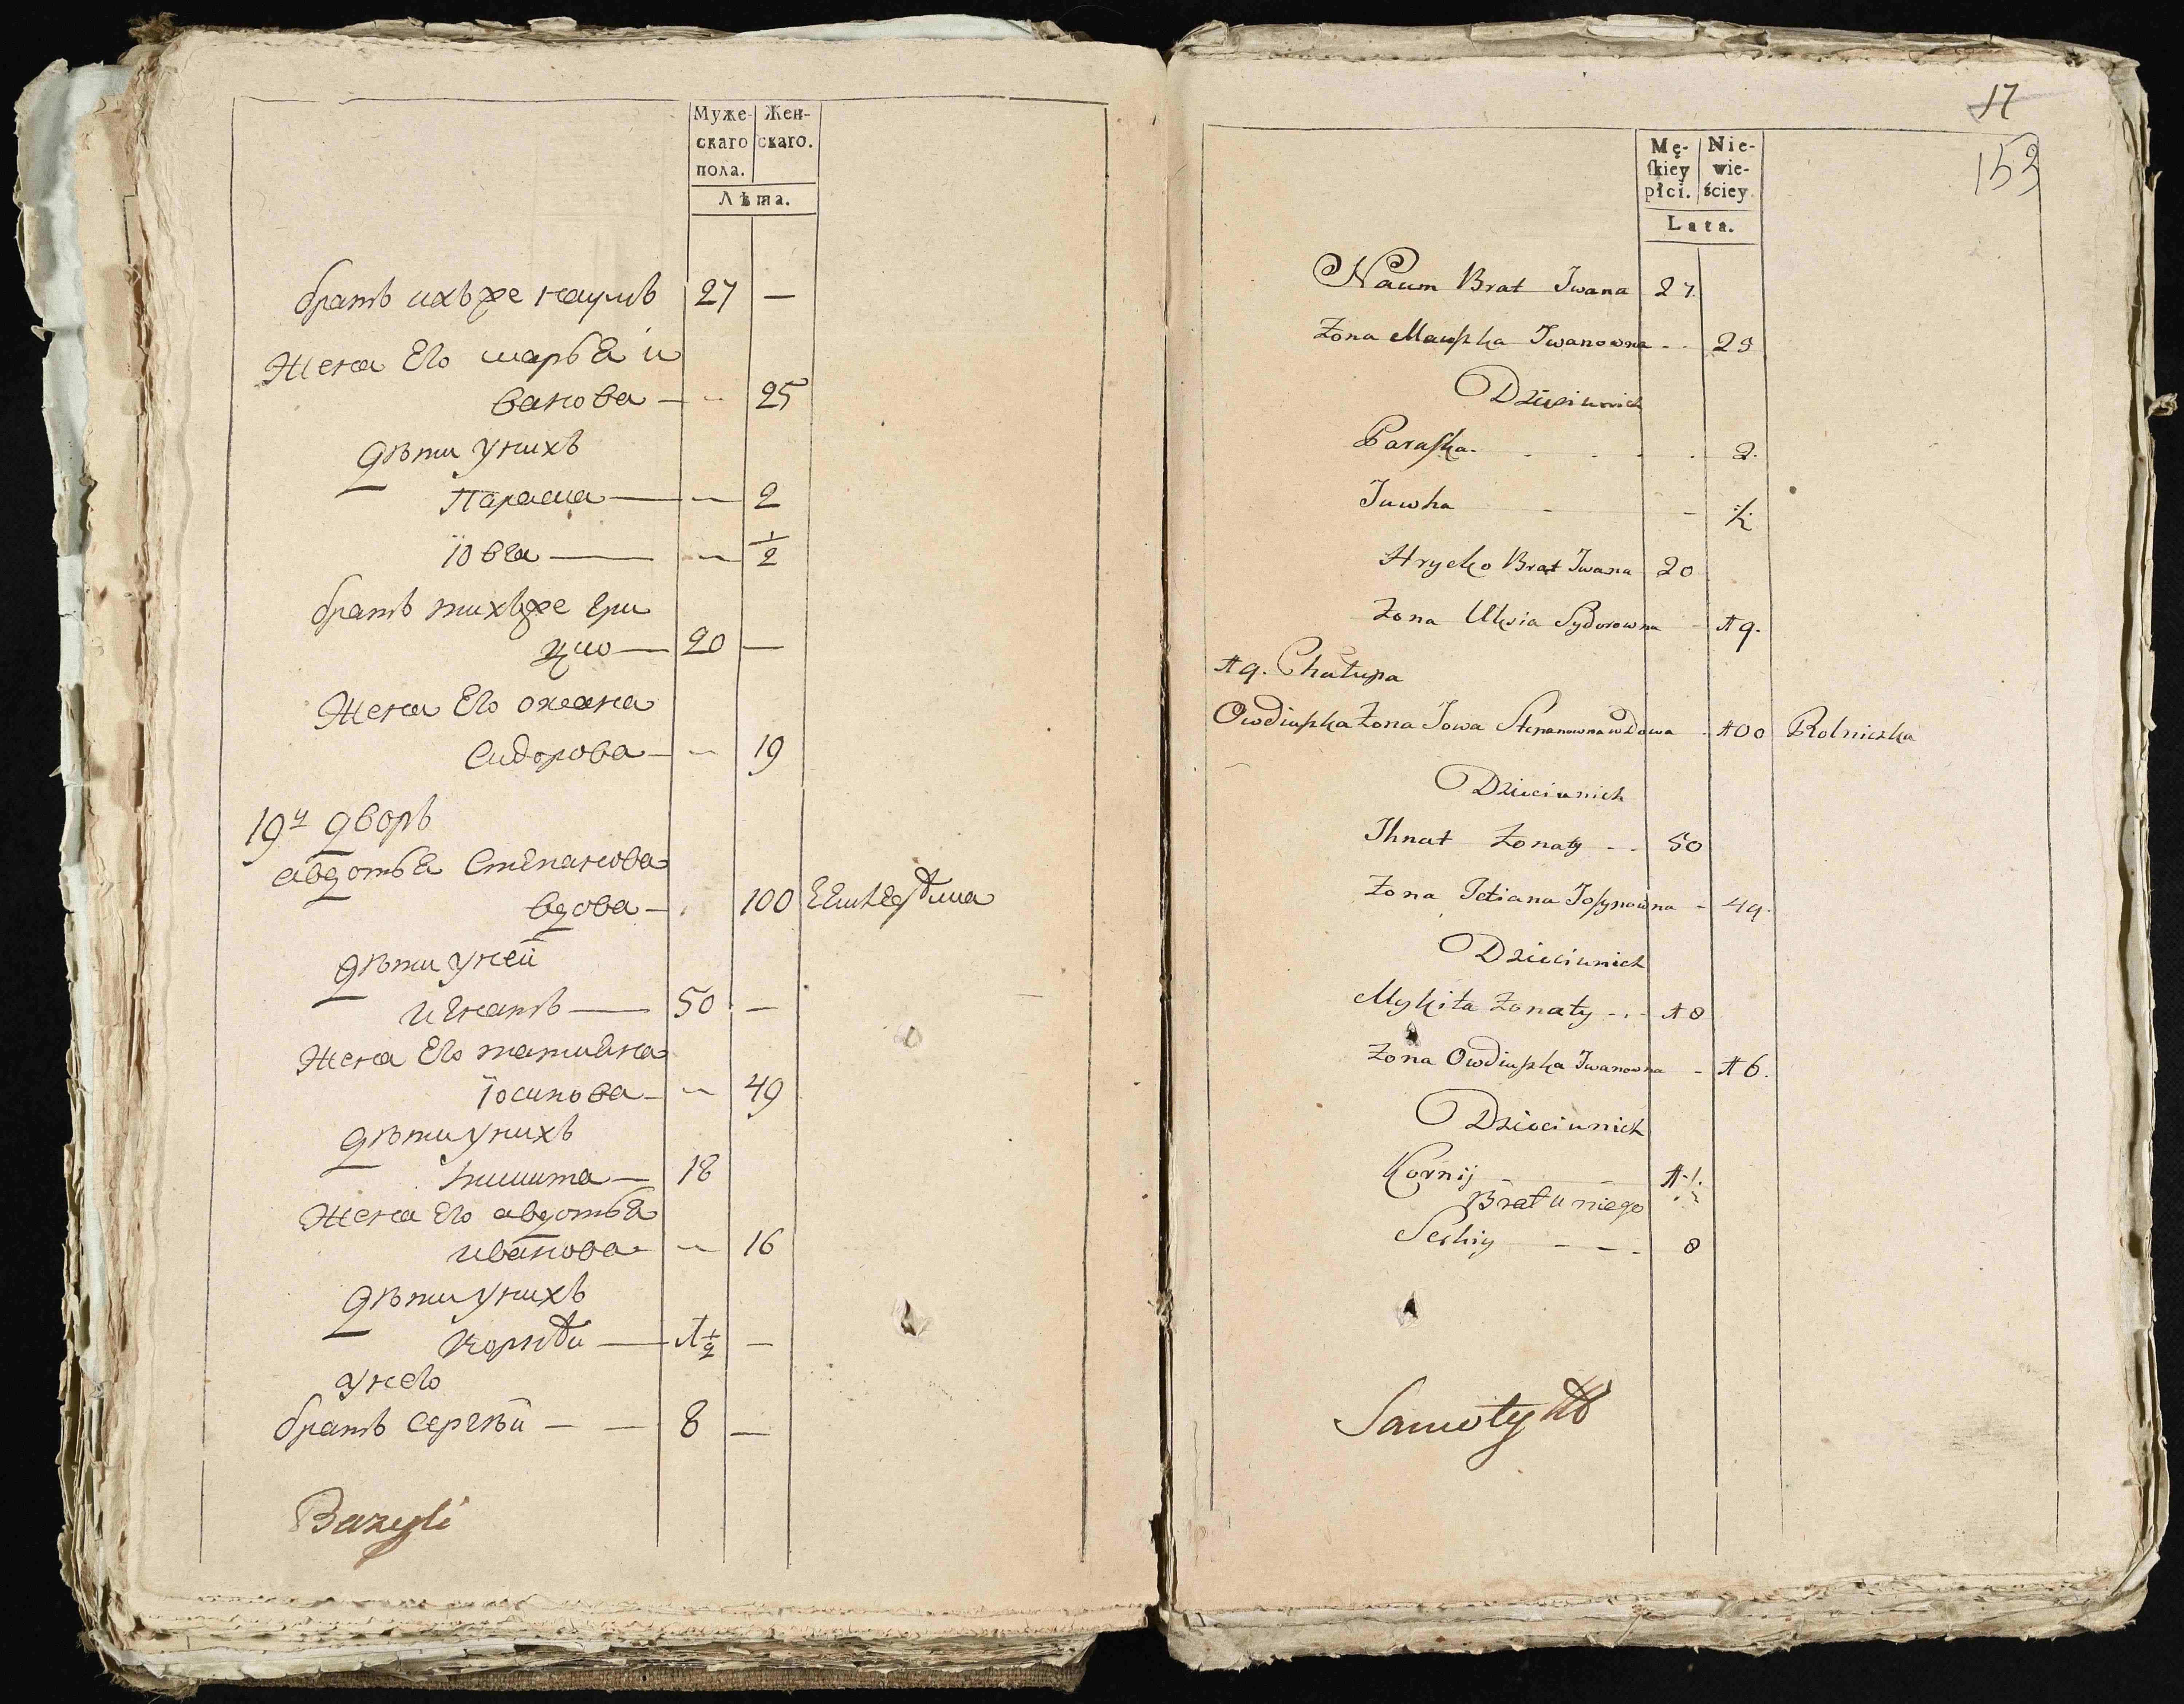 Муже-
скаго
пола.
Жен-
скаго.
Лѣта.
братъ ихъ же наумъ 27 —
Жена Его марья и
ванова — — 25
дѣти унихъ
Параска — — 2
ювга — — 1/2
братъ тихъже гри
цко — 20 —
Жена Его оксана
Сидорова — — 19
19й дворъ
авдотья Степанова
вдова — 100
дѣти уней
игнатъ — 50 —
Жена Его татияна
іосипова — — 49
дѣти унихъ
никита — 18
Жена Его авдотья
иванова — — 16
дѣти унихъ
корнѣй — 1 1/2 —
унего
братъ Сергѣй — — 8 —
Bazyli
17
153
Mę-
ſkiey
płci.
Nie-
wie-
ściey
Lata.
Naum Brat Iwana 27.
Żona Iwanowna - - 25
Dzieci unich
Paraſka - . . . 2.
Juwha - - ½
Hrycko Brat Iwana 20
Żona Uksia Sydorowna - 19.
19. Chałupa
Żona Iowa Stepanowna wdowa - 100 Rolniczka
Dzieci unich
Ihnat Żonaty - - 50
Żona Tetiana Josypowna - 49.
Dzieci unich
Mykita Żonaty - . - 18
Żona Iwanowna - 16.
Dzieci unich
Kornij - - 1½
Brat u niego
Serhiy - - - 8